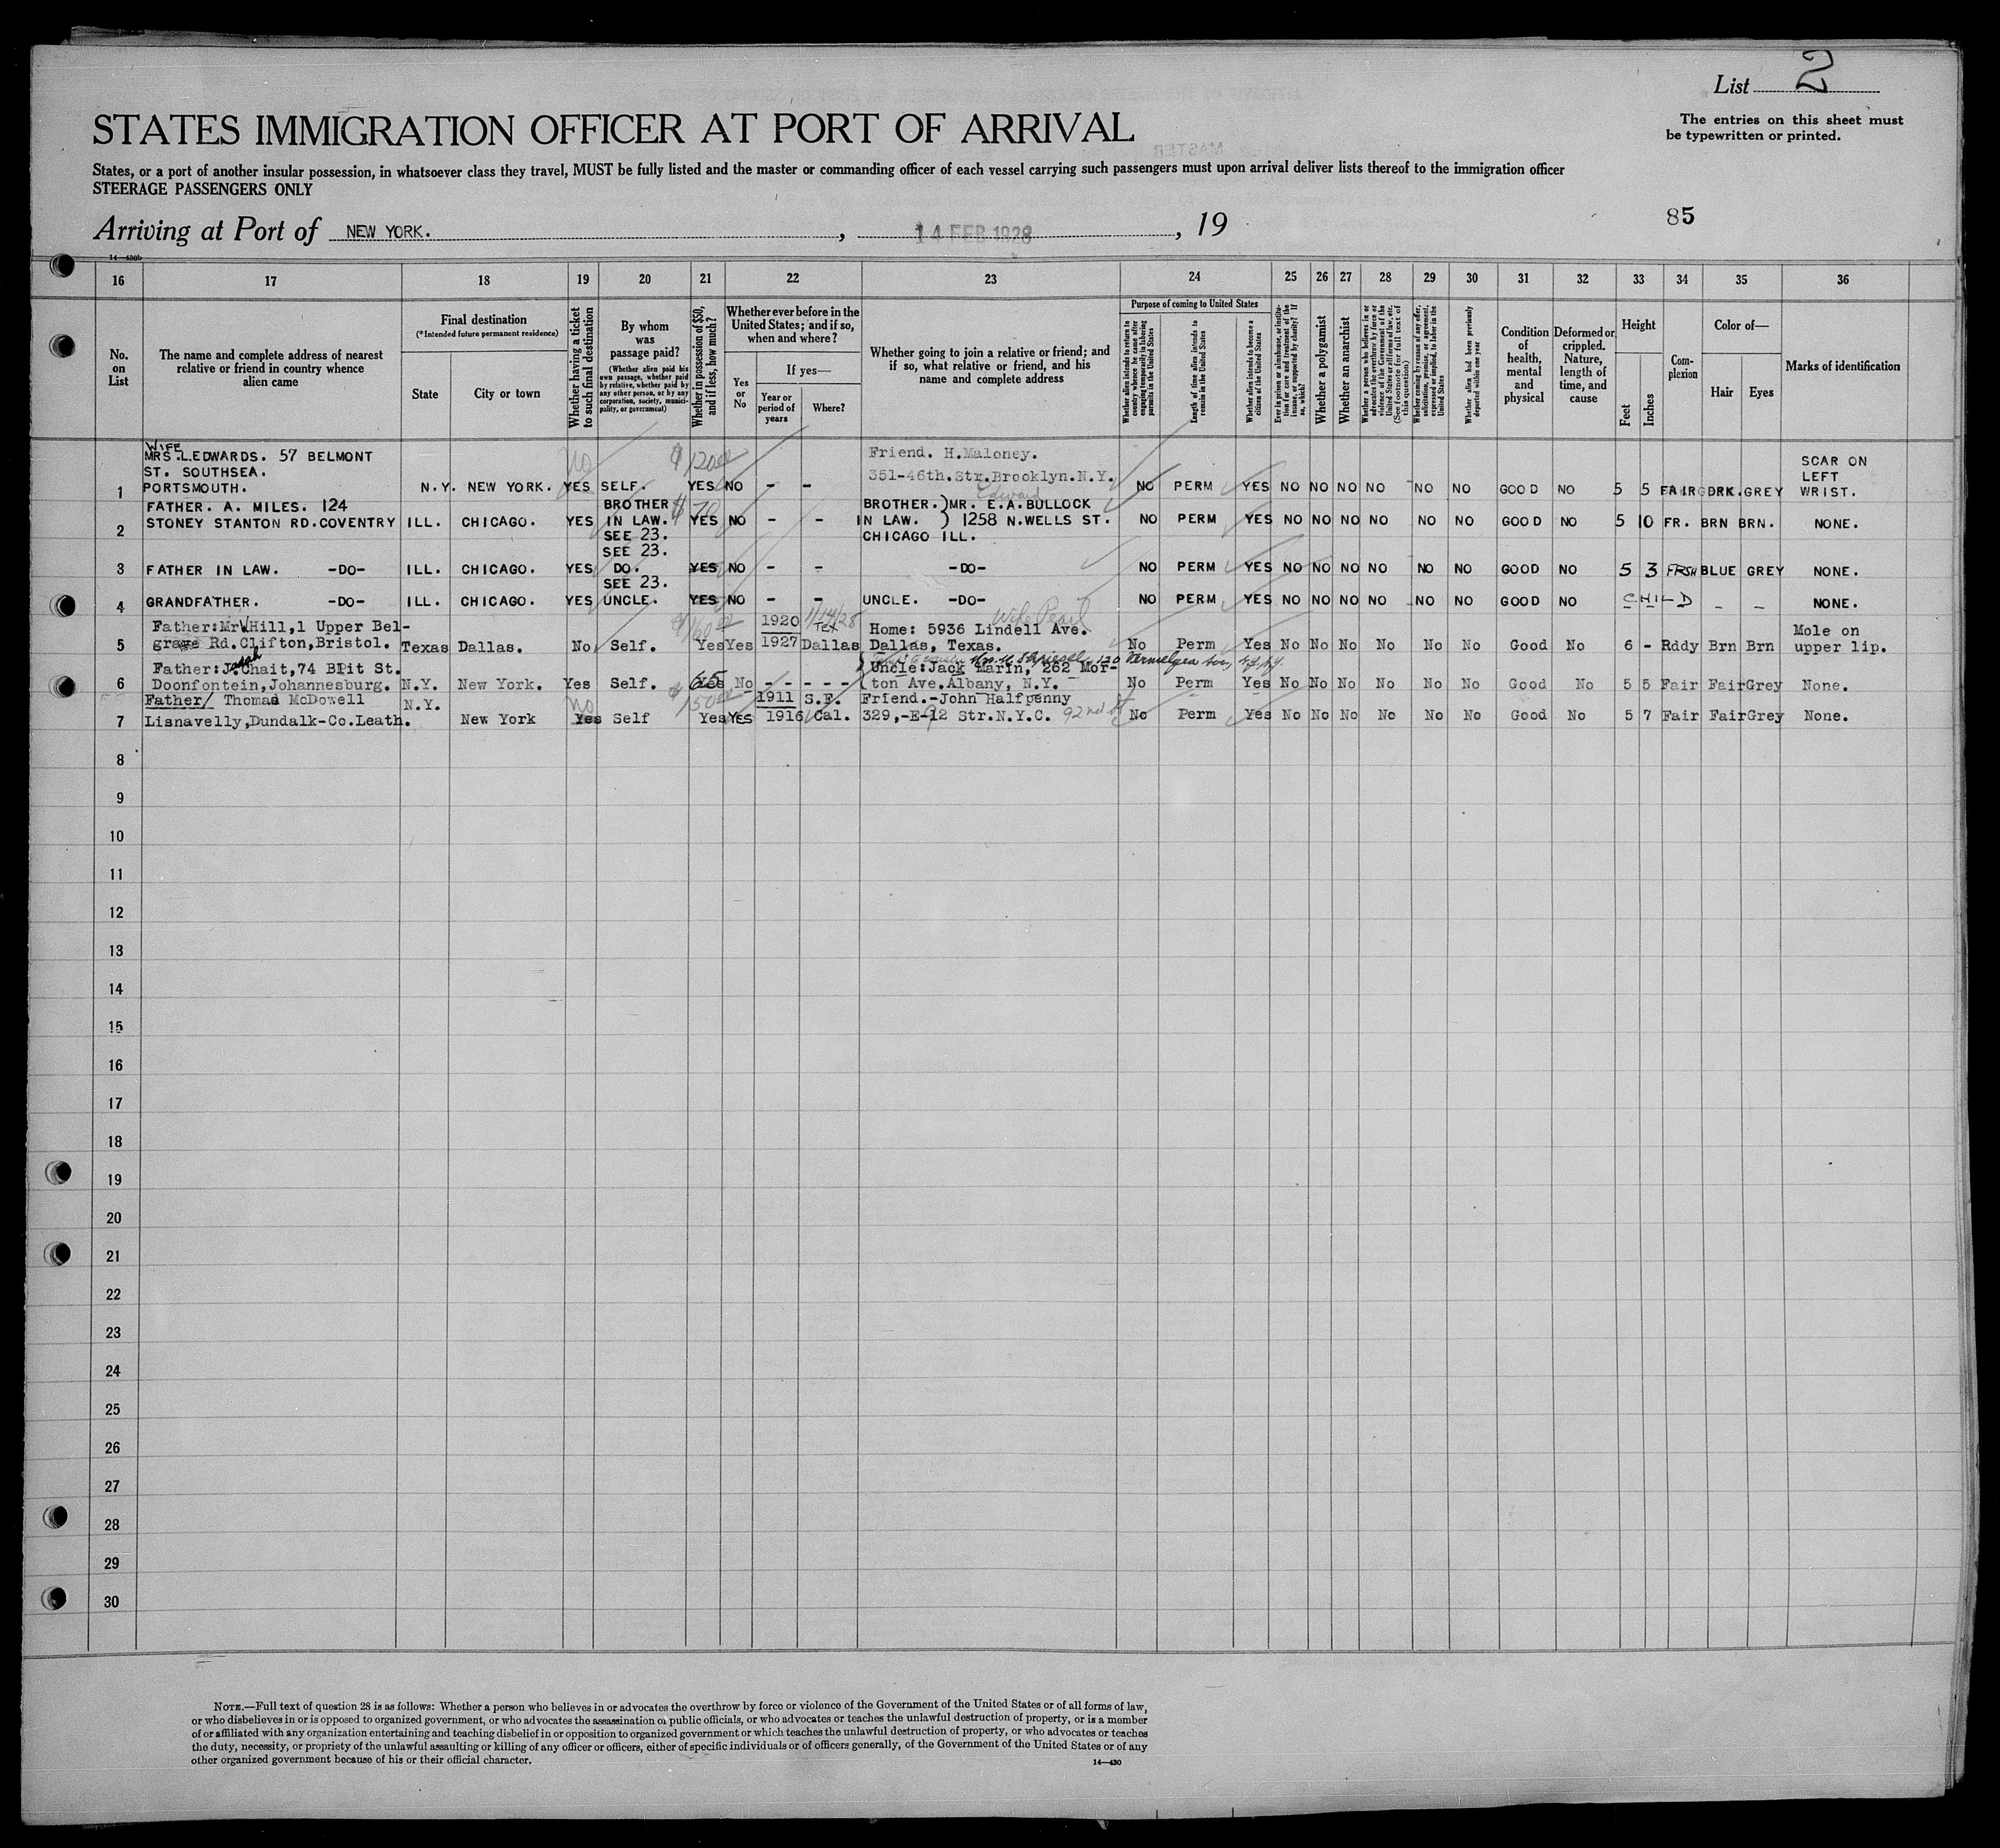 List 2
The entries on this sheet must
be typewritten or printed.
STATES IMMIGRATION OFFICER AT PORT OF ARRIVAL
States, or a port of another insular possession, in whatsoever class they travel, MUST be fully listed and the master or commanding officer of each vessel carrying such passengers must upon arrival deliver lists thereof to the immigration officer
STEERAGE PASSENGERS ONLY
85
Arriving at Port of NEW YORK. , 14 FEB 1928 , 19
14—430b
16 17 18 19 20 21 22 23 24 25 26 27 28 29 30 31 32 33 34 35 36
No. on List
The name and complete address of nearest relative or friend in country whence alien came
Final destination
(*Intended future permanent residence)
State
City or town
Whether having a ticket to such final destination
By whom was passage paid?
(Whether alien paid his own passage, whether paid by relative, whether paid by any other person, or by any corporation, society, municipality, or government)
Whether in possession of $50, and if less, how much?
Whether ever before in the United States; and if so, when and where?
Yes or No
If yes—
Year or period of years
Where?
Whether going to join a relative or friend; and if so, what relative or friend, and his name and complete address
Purpose of coming to United States
Whether alien intends to return to country whence he came after engaging temporarily in laboring pursuits in the United States
Length of time alien intends to remain in the United States
Whether alien intends to become a citizen of the United States
Ever in prison or almshouse, or institution for care and treatment of the insane, or supported by charity? If so, which?
Whether a polygamist
Whether an anarchist
Whether a person who believes in or advocates the overthrow by force or violence of the Government of the United States or all forms of law, etc. (See footnote for full text of this question)
Whether coming by reason of any offer, solicitation, promise, or agreement, expressed or implied, to labor in the United States
Whether alien had been previously deported within one year
Condition of health, mental and physical
Deformed or crippled. Nature, length of time, and cause
Height
Feet
Inches
Complexion
Color of—
Hair
Eyes
Marks of identification
WIFE
MRS. L. EDWARDS. 57 BELMONT no $120 Friend. H.Maloney. SCAR ON
ST. SOUTHSEA. 351-46th.Str.Brooklyn.N.Y. LEFT
1 PORTSMOUTH. N.Y. NEW YORK. YES SELF. YES NO - - NO PERM YES NO NO NO NO NO NO GOOD NO 5 5 FAIR DRK. GREY WRIST.
FATHER. A. MILES. 124 BROTHER $70 Edward BROTHER.) MR. E.A.BULLOCK
2 STONEY STANTON RD. COVENTRY ILL. CHICAGO. YES IN LAW. YES NO - - IN LAW. ) 1258 N.WELLS ST. NO PERM YES NO NO NO NO NO NO GOOD NO 5 10 FR. BRN BRN. NONE.
SEE 23. CHICAGO ILL.
SEE 23.
3 FATHER IN LAW. -DO- ILL. CHICAGO. YES DO. YES NO - - -DO- NO PERM YES NO NO NO NO NO NO GOOD NO 5 3 FRSH BLUE GREY NONE.
SEE 23.
4 GRANDFATHER. -DO- ILL. CHICAGO. YES UNCLE. YES NO - - UNCLE. -DO- NO PERM YES NO NO NO NO NO NO GOOD NO CHILD - - NONE.
Father:Mr W Hill,1 Upper Bel- $160 1920 1/14/28 TEX Wife Pearl Home: 5936 Lindell Ave. Mole on
5 grave Rd.Clifton,Bristol. Texas Dallas. No Self. Yes Yes 1927 Dallas Dallas, Texas. No Perm Yes No No No No No No Good No 6 - Rddy Brn Brn upper lip.
Father:Joseph Chait,74 BPit St. Uncle:Jack Marin, 262 Mor-
6 Doonfontein,Johannesburg. N.Y. New York. Yes Self. 65 Yes No - - - - - ton Ave.Albany, N.Y. No Perm Yes No No No No No No Good No 5 5 Fair Fair Grey None.
Father/ Thomas McDowell N.Y. no $150 1911 S.F. Friend.-John Halfpenny
7 Lisnavelly,Dundalk-Co.Leath. New York Yes Self Yes YES 1916 Cal. 329,-E-92 Str.N.Y.C. 92nd St No Perm Yes No No No No No No Good No 5 7 Fair Fair Grey None.
8
9
10
11
12
13
14
15
16
17
18
19
20
21
22
23
24
25
26
27
28
29
30
NOTE.—Full text of question 28 is as follows: Whether a person who believes in or advocates the overthrow by force or violence of the Government of the United States or of all forms of law,
or who disbelieves in or is opposed to organized government, or who advocates the assassination of public officials, or who advocates or teaches the unlawful destruction of property, or is a member
of or affiliated with any organization entertaining and teaching disbelief in or opposition to organized government or which teaches the unlawful destruction of property, or who advocates or teaches
the duty, necessity, or propriety of the unlawful assaulting or killing of any officer or officers, either of specific individuals or of officers generally, of the Government of the United States or of any
other organized government because of his or their official character.
14—430